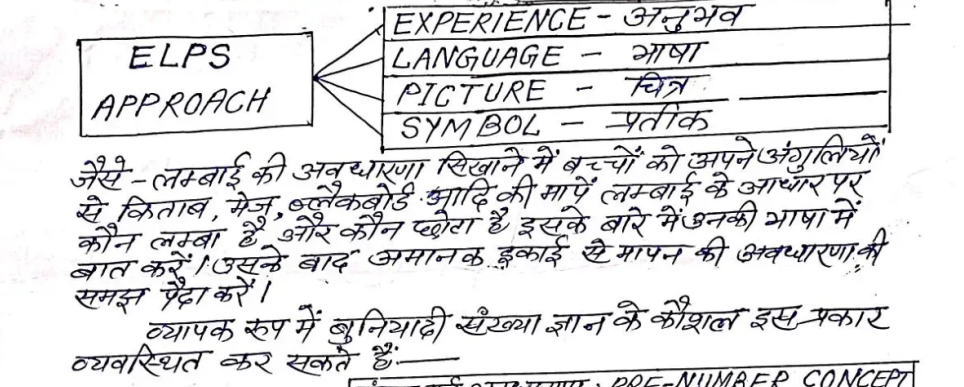 ELPS
APPROACH
EXPERIENCE - अनुभव
LANGUAGE - भाषा
PICTURE - चित्र
SYMBOL - प्रतीक
जैसे - लम्बाई की अवधारणा सिखाने में बच्चों को अपने अंगुलियों
से किताब, मेज, ब्लैकबोर्ड आदि की मापें लम्बाई के आधार पर
कौन लम्बा है, और कौन छोटा है इसके बारे में उनकी भाषा में
बात करें। उसके बाद अमानक इकाई से मापन की अवधारणा की
समझ पैदा करें।
व्यापक रूप में बुनियादी संख्या ज्ञान के कौशल इस प्रकार
व्यवस्थित कर सकते हैं:—
PRE-NUMBER CONCEPT